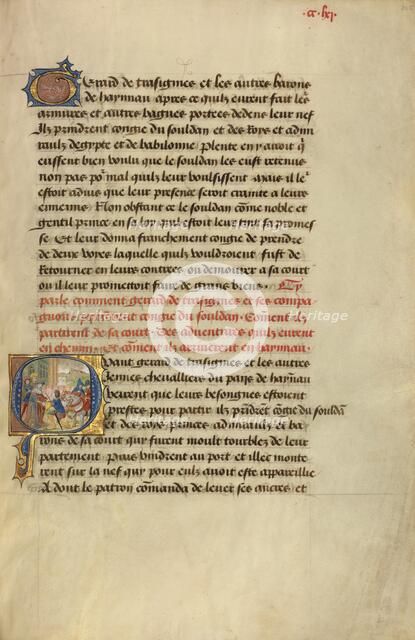 ·cc·lxj·
Gerard de trasignies et les autres barons
de haynnau apres ce quilz eurent fait leurs
armures et autres bagues portees dedens leur nef
Ilz prindrent congie du souldan et des roys et admi
raulz degypte et de babilonne Plente en y auoit qui
eussent bien voulu que le souldan les eust retenus
non pas por mal quilz leur voulsissent Mais il lr
estoit aduis que leur presence seroit crainte a leurs
ennemis Non obstant ce le souldan cõme noble et
gentil prince en sa loy quil estoit leur tint sa promes
se Et leur donna franchement congie de prendre
de deux voyes laquelle quilz vouldroient fust de
Retourner en leurs contrees ou demourer a sa court
ou il leur promettoit faire de grans biens Cy
parle comment gerard de trasignies et ses compai
gnons prindrent congie du souldan Coment ilz
partirent de sa court Des aduentures quilz eurent
en chemin Et coment ilz arriuerent en haynnau
Quant gerard de trasignies et les autres
Gentilz cheualliers du pays de haynau
veirent que leurs besongnes estoient
prestes pour partir ilz prindrẽt cõgie du souldã
et des roys princes admiraulz et ba
rons de sa court qui furent moult tourblez de leur
partement Puis vindrent au port et illec monte
rent sur la nef quy pour eulz auoit este appareillie
Adont le patron cõmanda de leuer ses ancres et
Heritage
Heritage
Heritage
Heritage